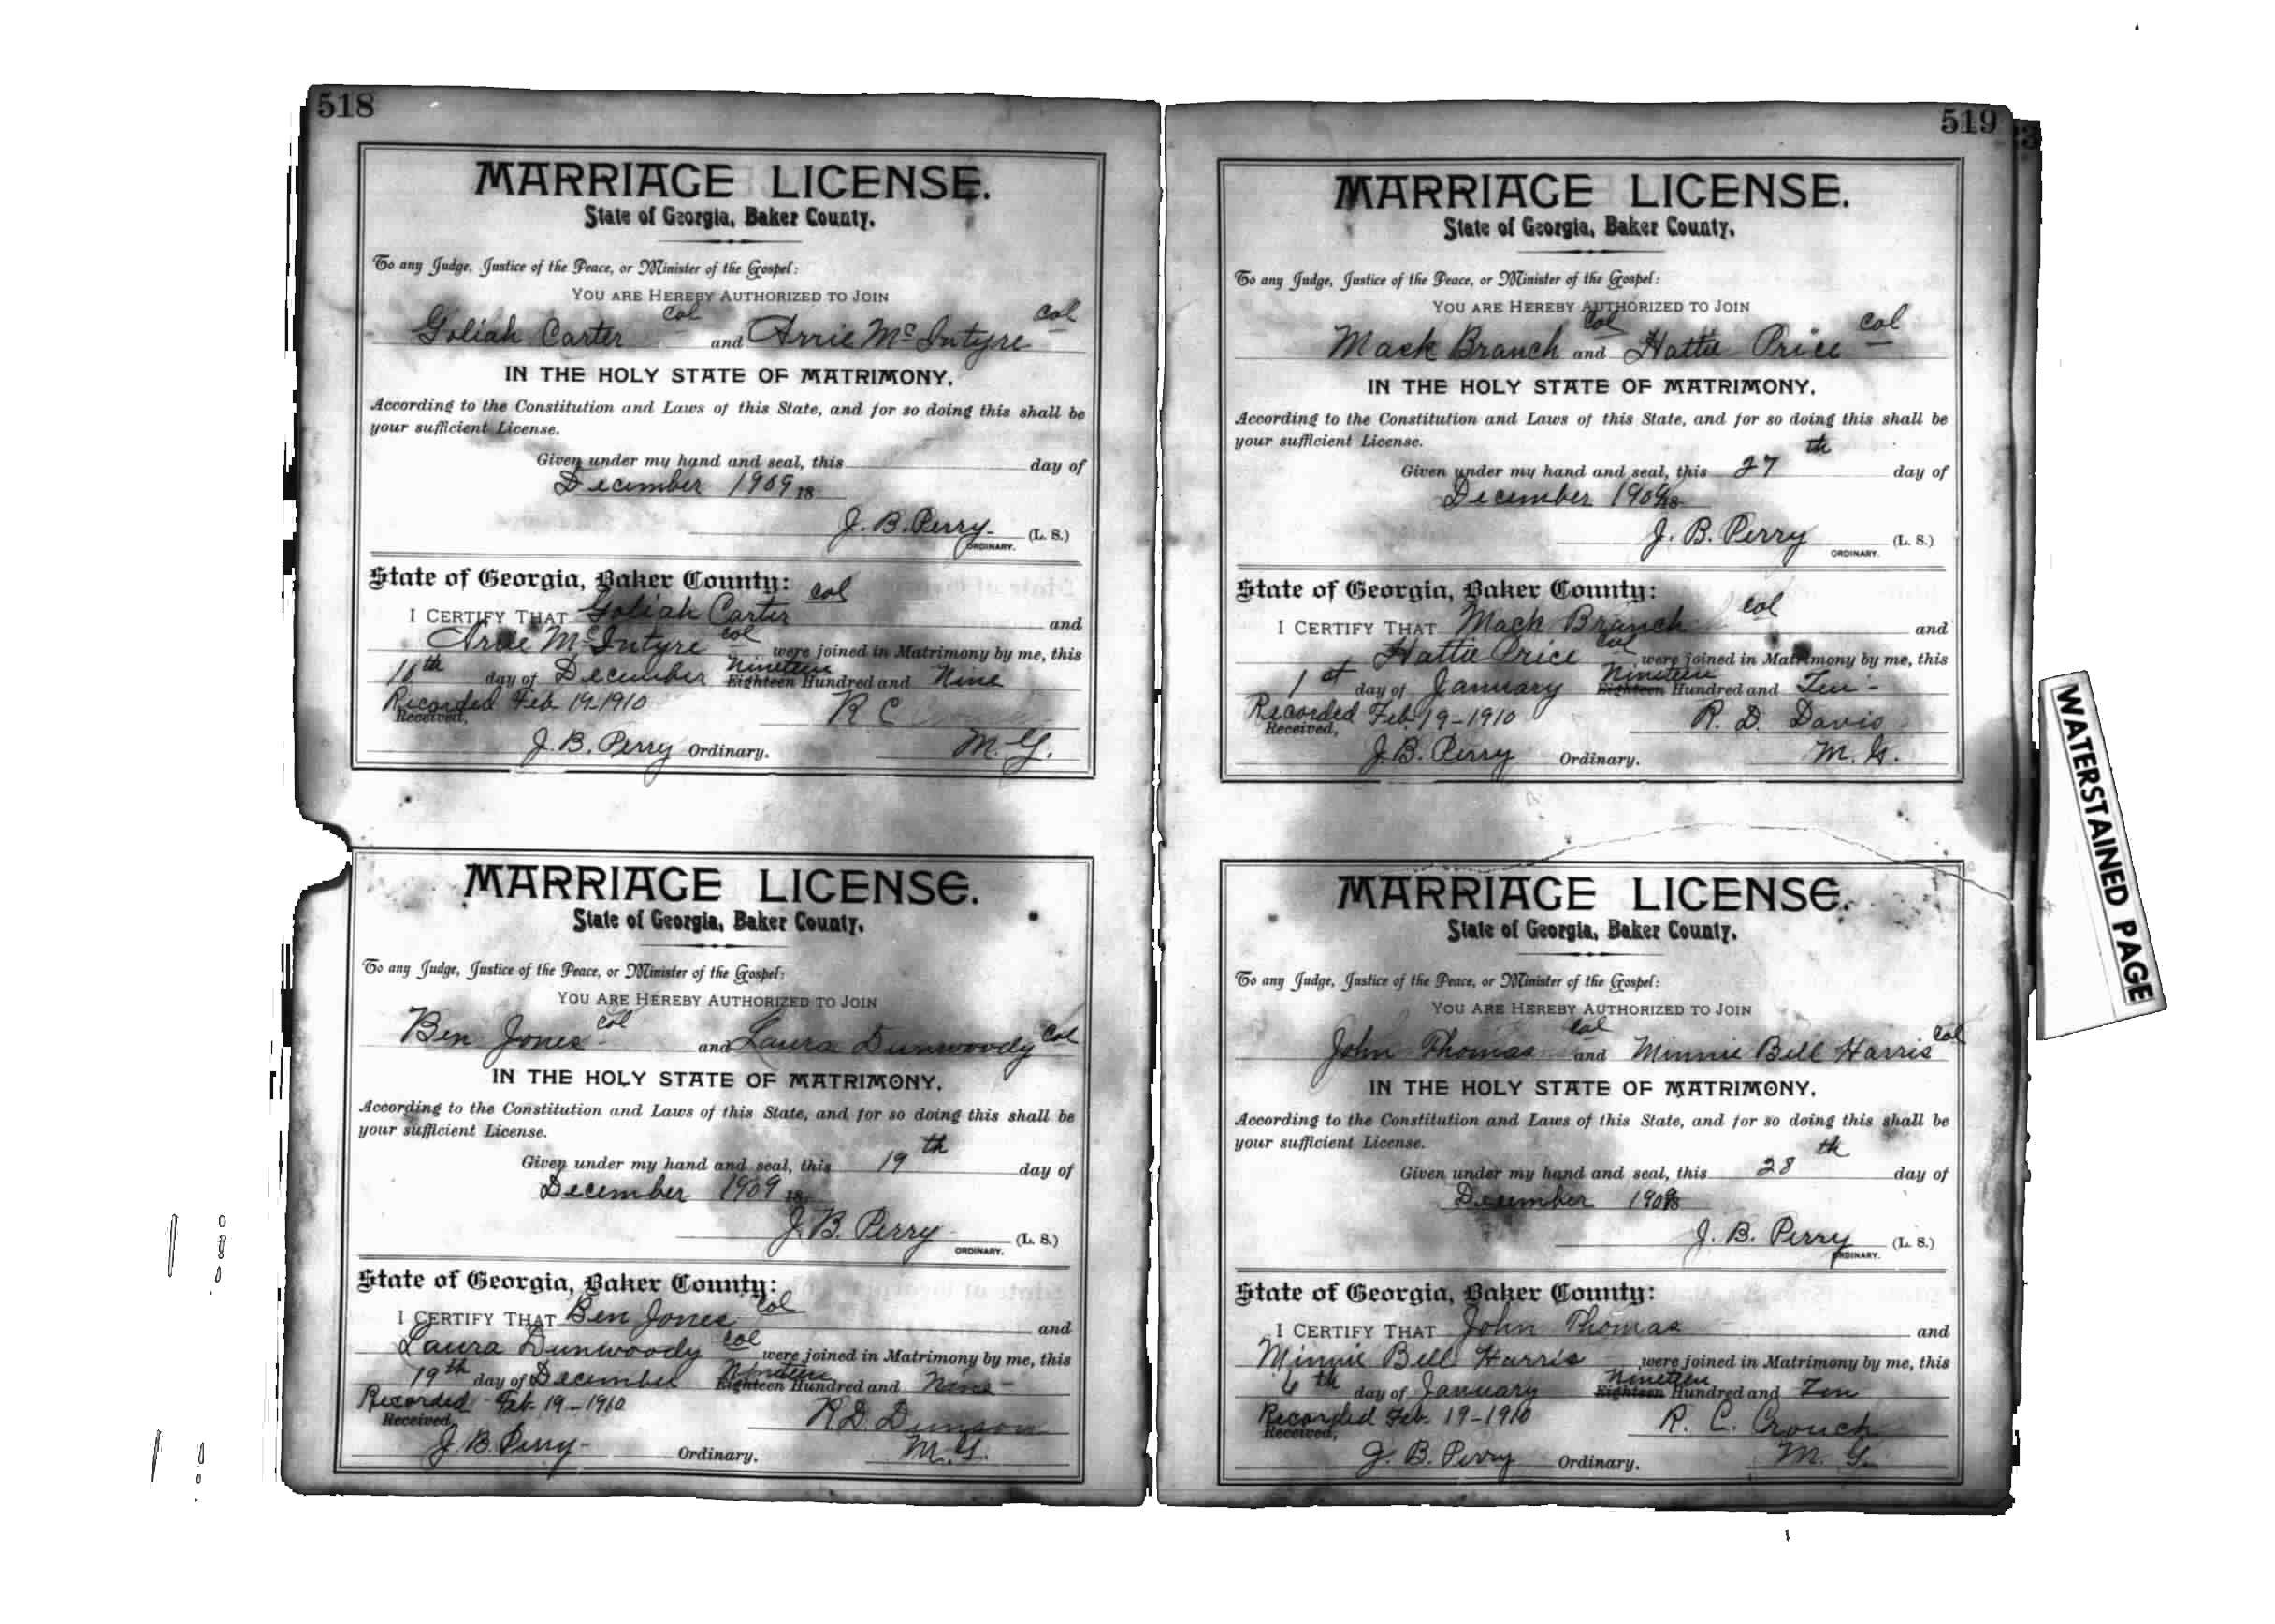 518
MARRIAGE LICENSE.
State of Georgia, Baker County.
To any Judge, Justice of the Peace, or Minister of the Gospel:
YOU ARE HEREBY AUTHORIZED TO JOIN
Goliah Carter col and Arrie McIntyre col
IN THE HOLY STATE OF MATRIMONY,
According to the Constitution and Laws of this State, and for so doing this shall be
your sufficient License.
Given under my hand and seal, this day of
December 1909 18
J. B. Perry (L. S.)
ORDINARY.
State of Georgia, Baker County:
I CERTIFY THAT Goliah Carter col and
McIntyre col were joined in Matrimony by me, this
16th day of December Nineteen Eighteen Hundred and Nine
Recorded Feb 19-1910
Received, R C
J. B. Perry Ordinary. M. G.
MARRIAGE LICENSE.
State of Georgia, Baker County.
To any Judge, Justice of the Peace, or Minister of the Gospel:
YOU ARE HEREBY AUTHORIZED TO JOIN
Ben Jones col and Laura Dunwoody col
IN THE HOLY STATE OF MATRIMONY,
According to the Constitution and Laws of this State, and for so doing this shall be
your sufficient License.
Given under my hand and seal, this 19th day of
December 1909 18
J. B. Perry (L. S.)
ORDINARY.
State of Georgia, Baker County:
I CERTIFY THAT Ben Jones col and
Laura Dunwoody col were joined in Matrimony by me, this
19th day of December Nineteen Eighteen Hundred and Nine
Recorded Feb. 19-1910
Received, R. D. Dunson
J. B. Perry Ordinary. M. G.
519
MARRIAGE LICENSE.
State of Georgia, Baker County.
To any Judge, Justice of the Peace, or Minister of the Gospel:
YOU ARE HEREBY AUTHORIZED TO JOIN
Mack Branch col and Hattie Price col
IN THE HOLY STATE OF MATRIMONY,
According to the Constitution and Laws of this State, and for so doing this shall be
your sufficient License.
Given under my hand and seal, this 27th day of
December 1909 18
J. B. Perry (L. S.)
ORDINARY.
State of Georgia, Baker County:
I CERTIFY THAT Mack Branch col and
Hattie Price col were joined in Matrimony by me, this
1st day of January Nineteen Eighteen Hundred and Ten
Recorded Feb. 19-1910
Received, R. D. Davis
J. B. Perry Ordinary. M. G.
MARRIAGE LICENSE.
State of Georgia, Baker County.
To any Judge, Justice of the Peace, or Minister of the Gospel:
YOU ARE HEREBY AUTHORIZED TO JOIN
John Thomas col and Minnie Bell Harris col
IN THE HOLY STATE OF MATRIMONY,
According to the Constitution and Laws of this State, and for so doing this shall be
your sufficient License.
Given under my hand and seal, this 28th day of
December 1909 18
J. B. Perry (L. S.)
ORDINARY.
State of Georgia, Baker County:
I CERTIFY THAT John Thomas and
Minnie Bell Harris were joined in Matrimony by me, this
6th day of January Nineteen Eighteen Hundred and Ten
Recorded Feb. 19-1910
Received, R. C. Crouch
J. B. Perry Ordinary. M. G.
WATERSTAINED PAGE